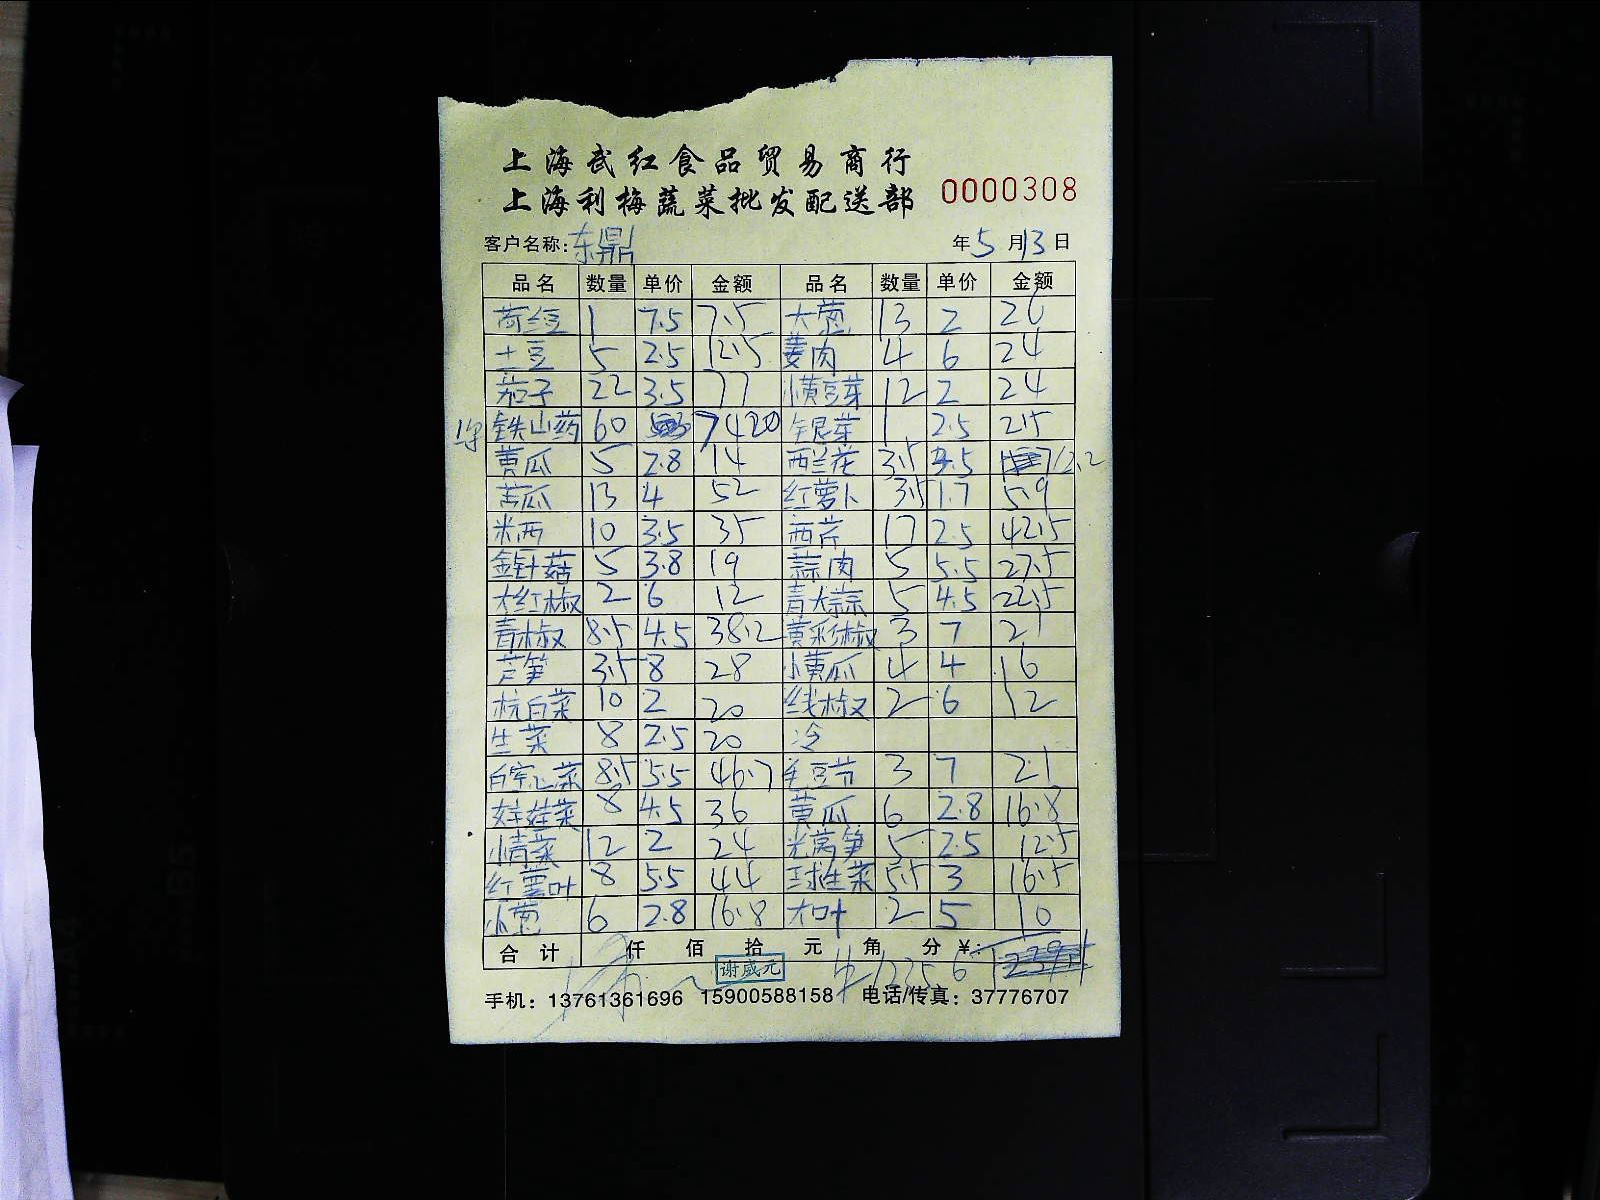 上海武红食品贸易商行
上海利梅蔬菜批发配送部 0000308
客户名称: 东鼎 年 5 月 13 日
品名 数量 单价 金额 品名 数量 单价 金额
荷兰豆 1 7.5 7.5 大葱 13 2 26
土豆 5 2.5 12.5 姜肉 4 6 24
茄子 22 3.5 77 小黄豆芽 12 2 24
铁山药 60 7 420 银芽 1 2.5 2.5
黄瓜 5 2.8 14 西兰花 3.5 3.5 12.2
苦瓜 13 4 52 红萝卜 3.5 1.7 5.9
米西 10 3.5 35 西芹 17 2.5 42.5
金针菇 5 3.8 19 蒜肉 5 5.5 27.5
大红椒 2 6 12 青大蒜 5 4.5 22.5
青椒 8.5 4.5 38.2 黄彩椒 3 7 21
芦笋 3.5 8 28 小黄瓜 4 4 16
杭白菜 10 2 20 线椒 2 6 12
生菜 8 2.5 20 冷
白空心菜 8.5 5.5 46.7 毛豆节 3 7 21
娃娃菜 8 4.5 36 黄瓜 6 2.8 16.8
小青菜 12 2 24 光莴笋 5 2.5 12.5
红薯叶 8 5.5 44 球生菜 5.5 3 16.5
小葱 6 2.8 16.8 木叶 2 5 10
合计 仟 佰 拾 元 角 分 ¥:
谢威元
手机: 13761361696 15900588158 电话/传真: 37776707